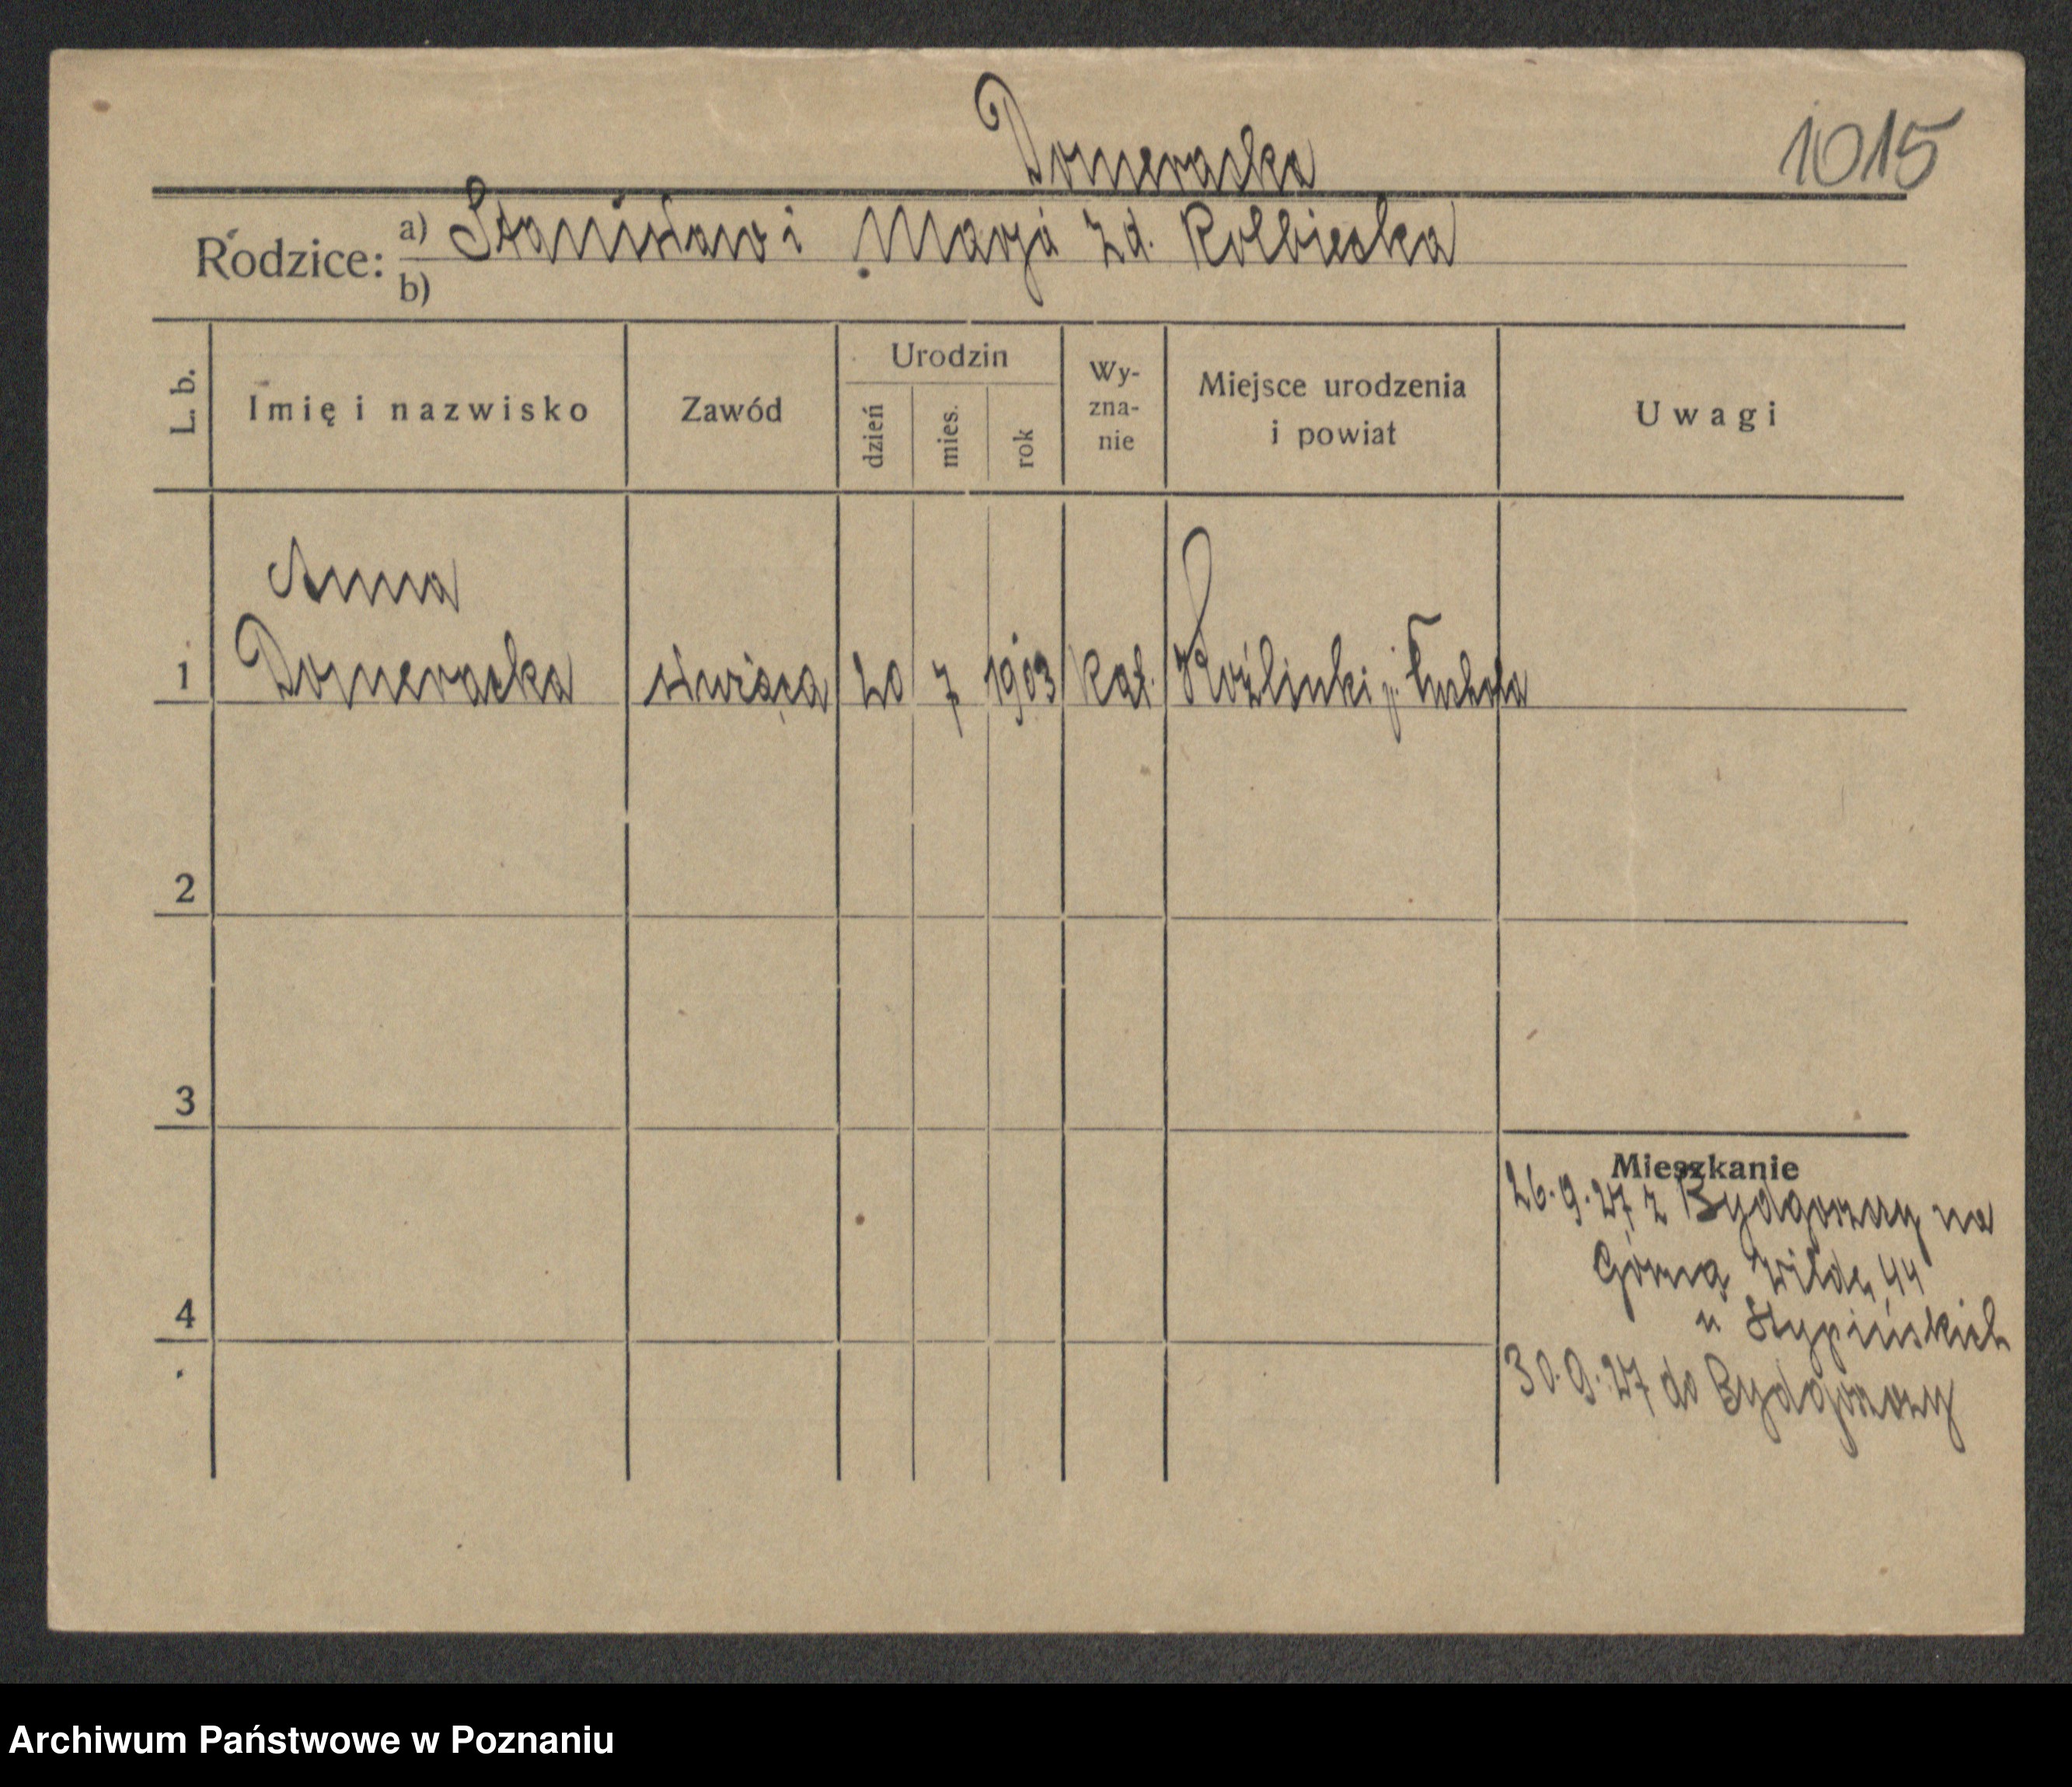 Domeracka
1015
Rodzice: a) Stanisław i Marja z d. Kolbiecka
b)
L. b. Imię i nazwisko Zawód Urodzin dzień mies. rok Wy-zna-nie Miejsce urodzenia i powiat Uwagi
Anna
1 Domeracka służąca 20 7 1903 kat. Koźlinki p. Tuchola
2
3
Mieszkanie
26.9.27 z Bydgoszczy na
Górną Wildę 44
4
u Stypińskich
30.9.27 do Bydgoszczy
Archiwum Państwowe w Poznaniu